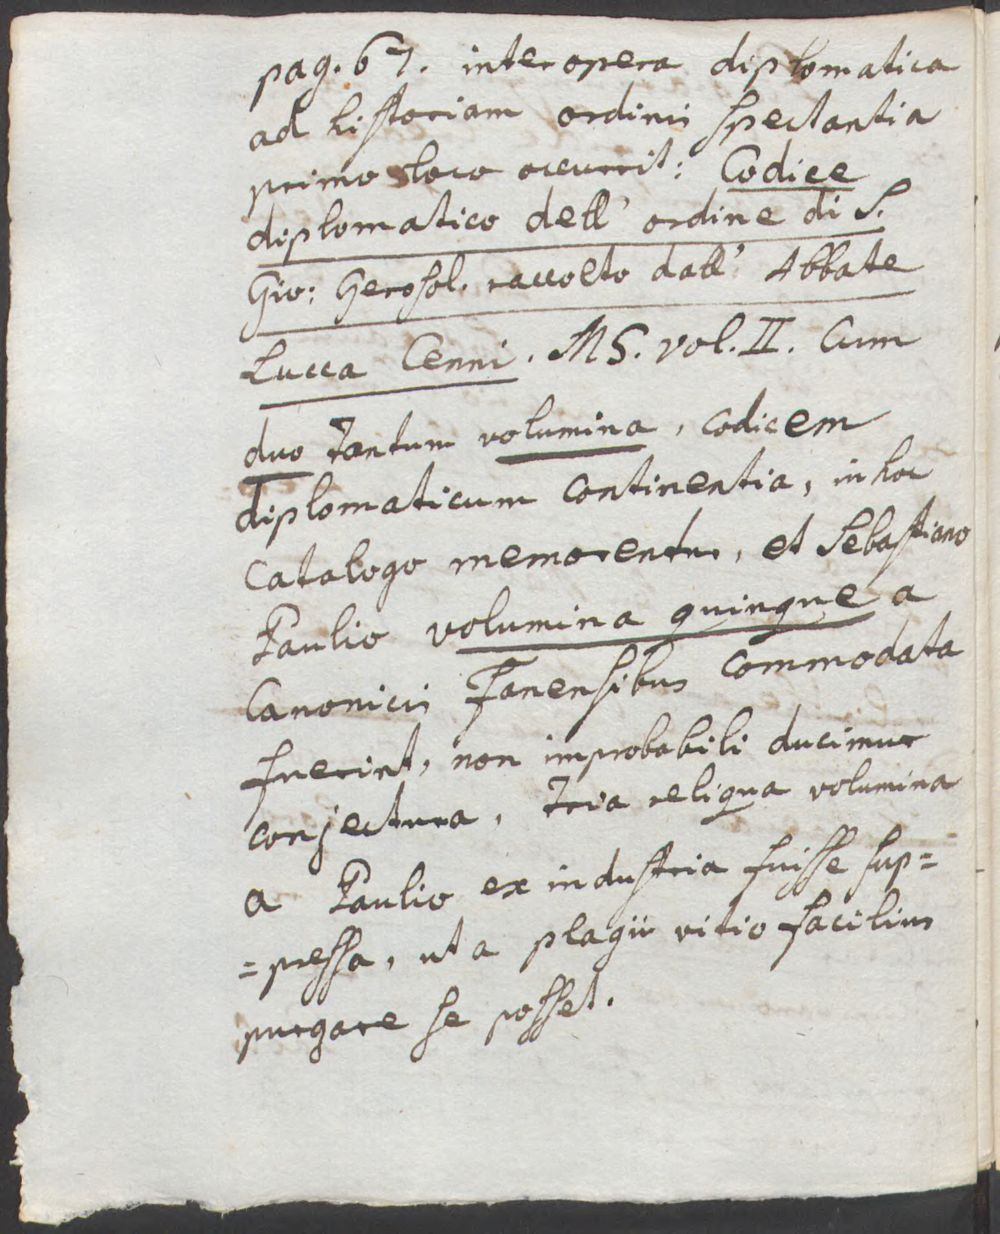 pag. 67. inter opera diplomatica
ad historiam ordinis spectantia
primo loco occurrit: Codice
diplomatico dell' ordine di S.
Gio: Gerosol. raccolto dall' Abbate
Lucca Cenni. MS. vol. II. Cum
duo tantum volumina, codicem
diplomaticum continentia, in hoc
Catalogo memorentur, et Sebastiano
Paulio volumina quinque a
Canonicis Fanensibus commodata
fuerint, non improbabili ducimur
conjectura, tria reliqua volumina
a Paulio ex industria fuisse sup=
=pressa, ut a plagii vitio facilius
purgare se posset.